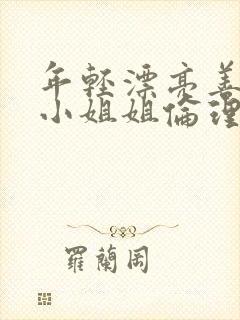 年轻漂亮善
小姐姐倫理
羅蘭岡